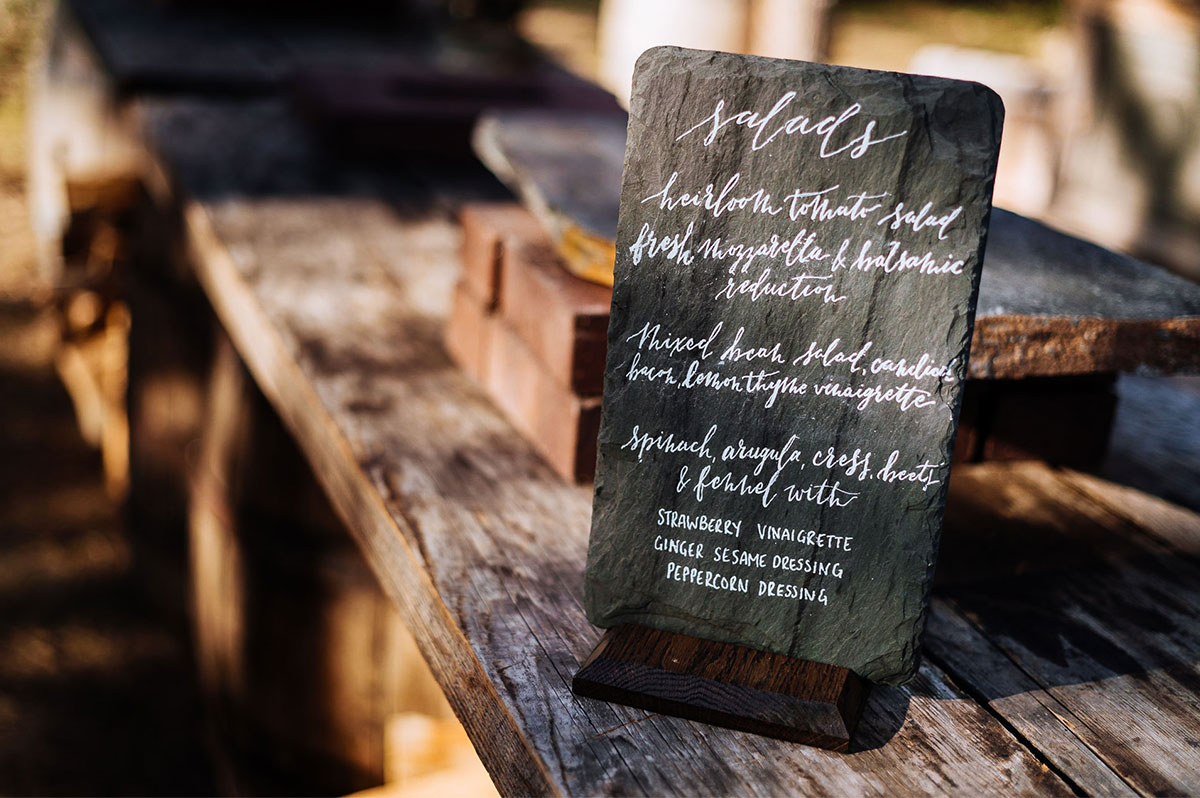 salads
heirloom tomato salad
fresh mozzarella & balsamic
reduction
Mixed bean salad, candied
bacon, lemon thyme vinaigrette
spinach, arugula, cress, beets
& fennel with
STRAWBERRY VINAIGRETTE
GINGER SESAME DRESSING
PEPPERCORN DRESSING